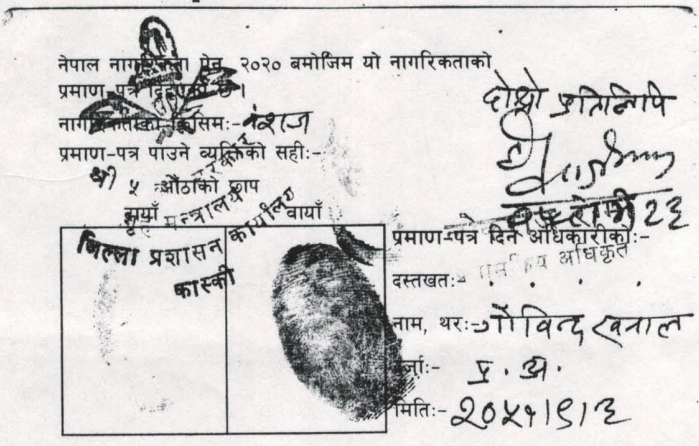 नेपाल नागरिकता ऐन, २०२० बमोजिम यो नागरिकताको
प्रमाण-पत्र दिइएको छ ।
नागरिकताको किसिमः- वंशज
प्रमाण-पत्र पाउने व्यक्तिको सहीः-
औंठाको छाप
दायाँ बायाँ
श्री ५ को सरकार
गृह मन्त्रालय
जिल्ला प्रशासन कार्यालय
कास्की
दोश्रो प्रतिलिपि
प्रमाण-पत्र दिने अधिकारीकोः-
अधिकृत
दस्तखतः-
नाम, थरः- गोविन्द खनाल
दर्जाः- प्र. अ.
मितिः- २०५१।९।६